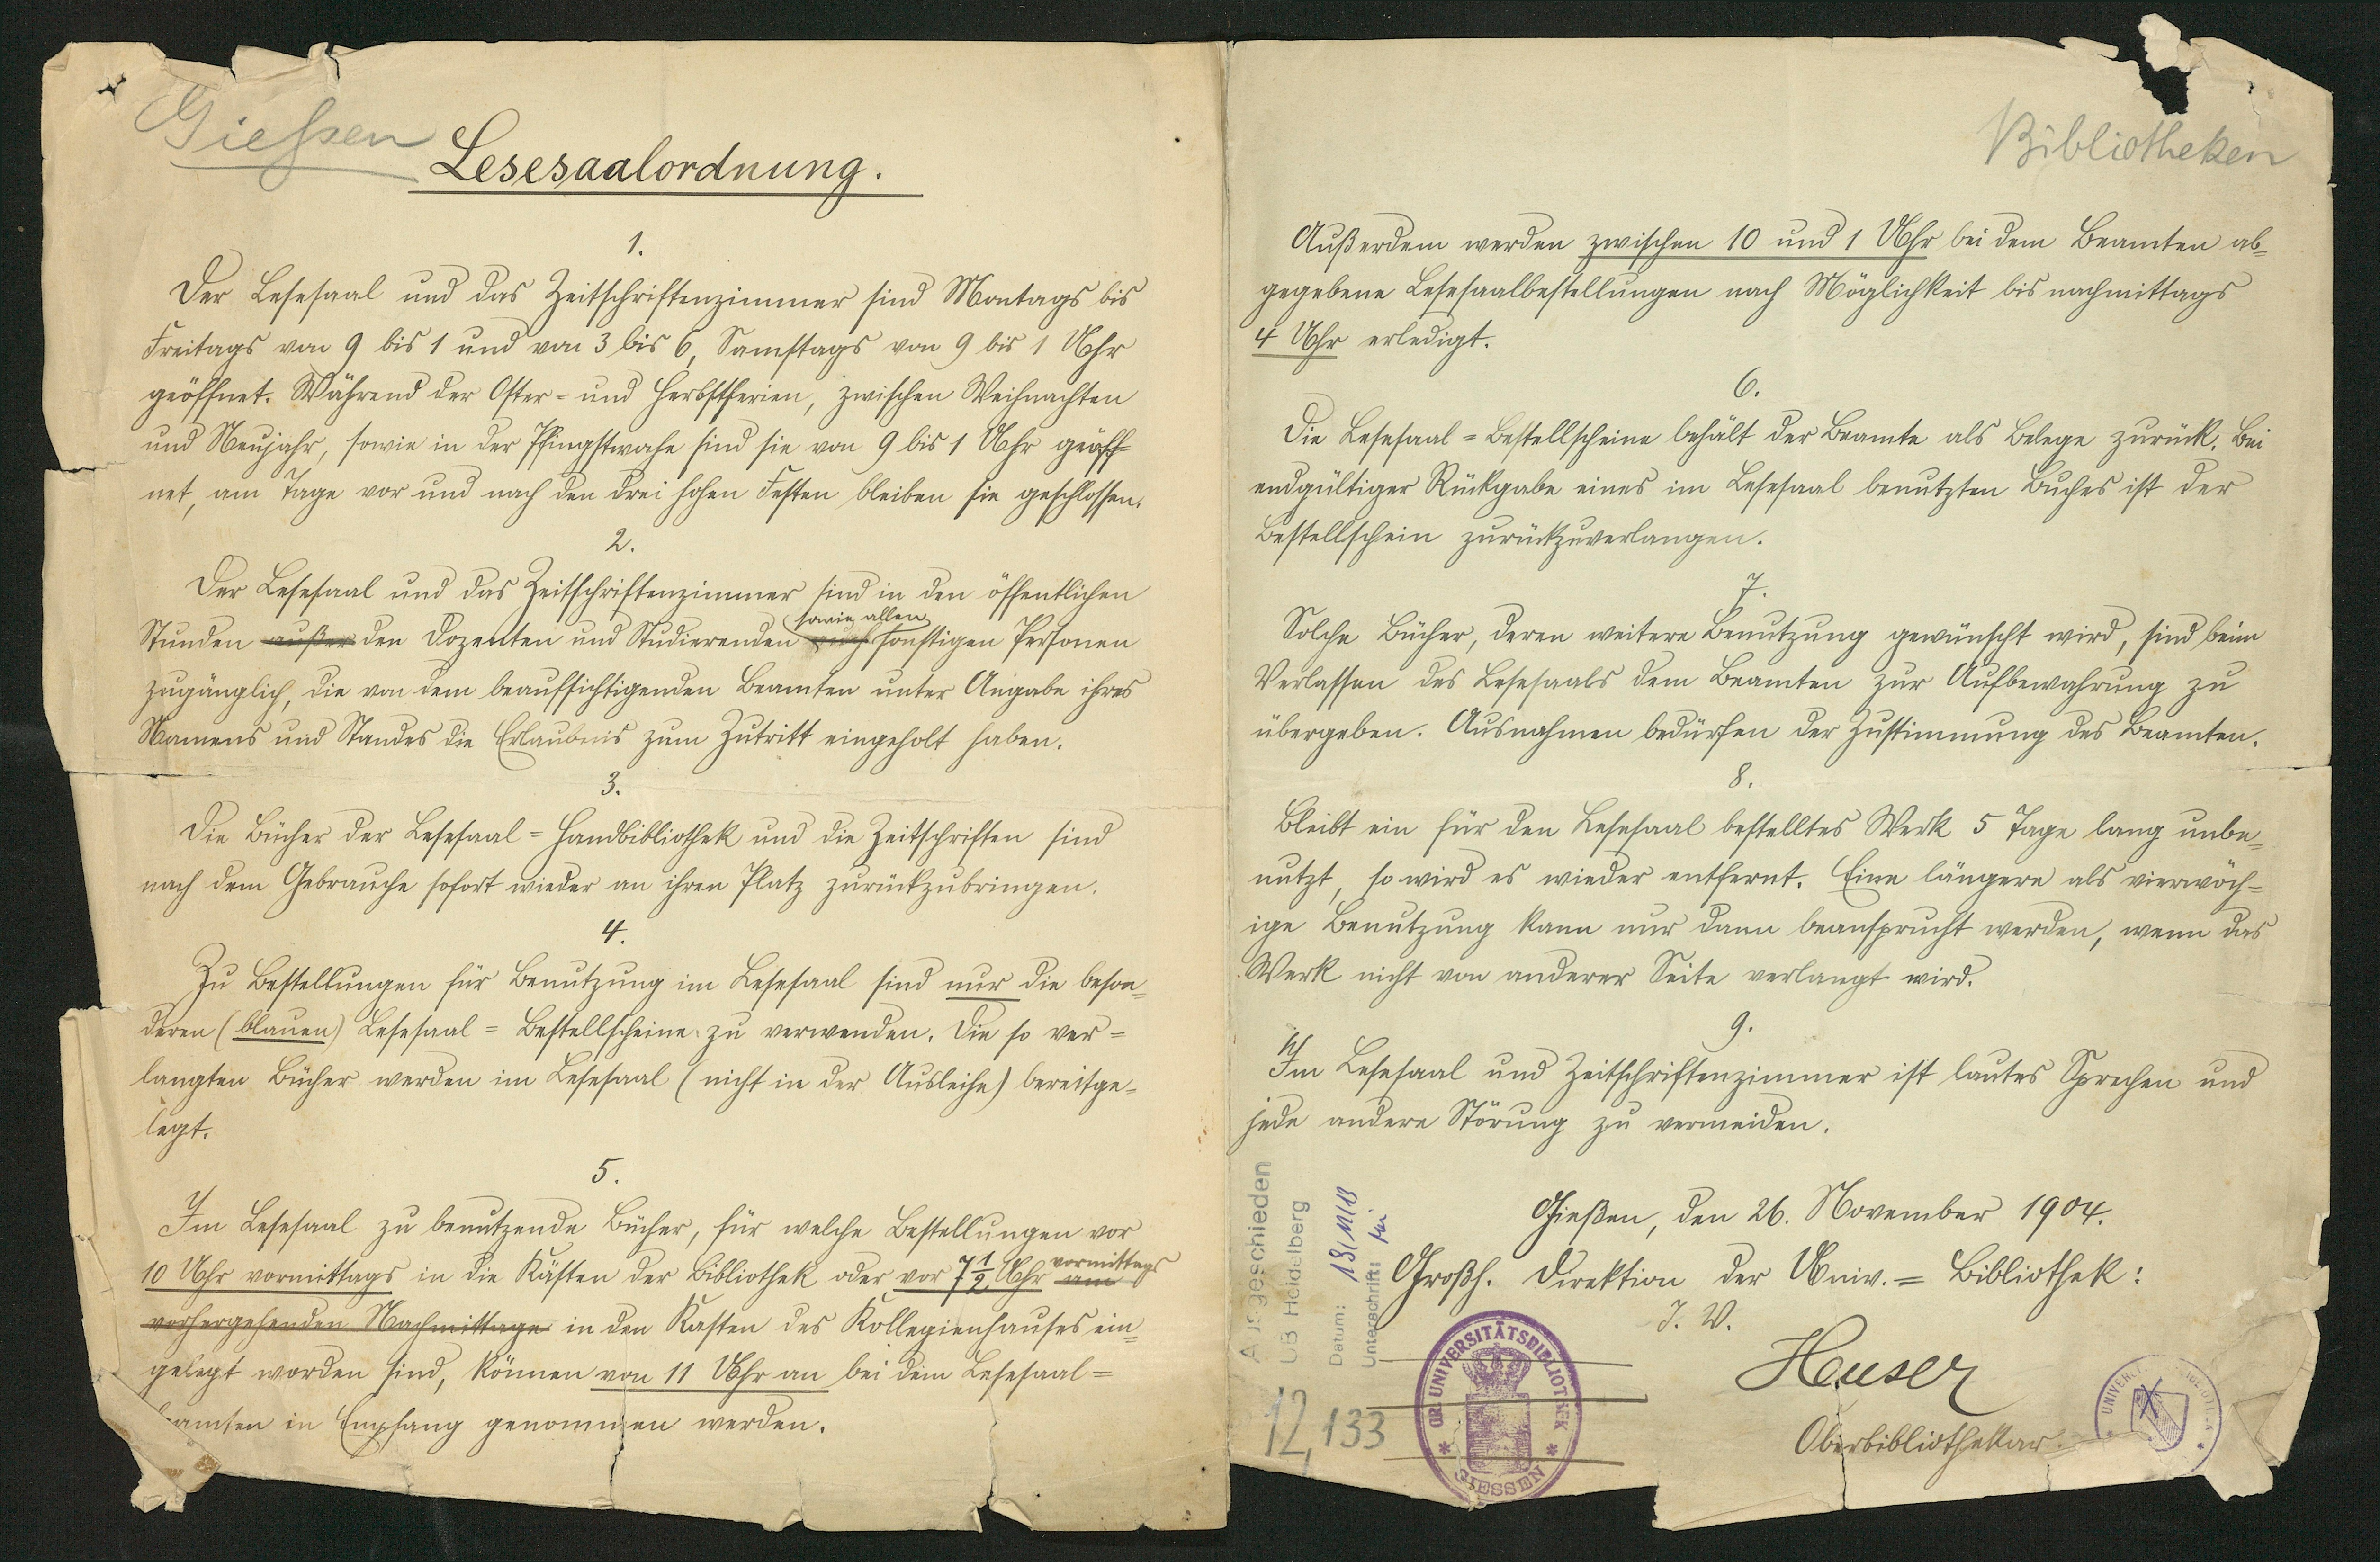 Giessen
Lesesaalordnung.
1.
Der Lesesaal und das Zeitschriftenzimmer sind Montags bis
Freitags von 9 bis 1 und von 3 bis 6, Samstags von 9 bis 1 Uhr
geöffnet. Während der Oster- und Herbstferien, zwischen Weihnachten
und Neujahr, sowie in der Pfingstwoche sind sie von 9 bis 1 Uhr geöff-
net, am Tage vor und nach den drei hohen Festen bleiben sie geschlossen.
2.
Der Lesesaal und das Zeitschriftenzimmer sind in den öffentlichen
sowie allen
Stunden außer den Dozenten und Studierenden auch sonstigen Personen
zugänglich, die von dem beaufsichtigenden Beamten unter Angabe ihres
Namens und Standes die Erlaubnis zum Zutritt eingeholt haben.
3.
Die Bücher der Lesesaal-Handbibliothek und die Zeitschriften sind
nach dem Gebrauche sofort wieder an ihren Platz zurückzubringen.
4.
Zu Bestellungen für Benutzung im Lesesaal sind nur die beson-
deren (blauen) Lesesaal-Bestellscheine zu verwenden. Die so ver-
langten Bücher werden im Lesesaal (nicht in der Ausleihe) bereitge-
legt.
5.
Im Lesesaal zu benutzende Bücher, für welche Bestellungen vor
vormittags
10 Uhr vormittags in die Kästen der Bibliothek oder vor 7 1/2 Uhr am
vorhergehenden Nachmittage in den Kasten des Kollegienhauses ein-
gelegt worden sind, können von 11 Uhr an bei dem Lesesaal-
beamten in Empfang genommen werden.
Bibliotheken
Außerdem werden zwischen 10 und 1 Uhr bei dem Beamten ab-
gegebene Lesesaalbestellungen nach Möglichkeit bis nachmittags
4 Uhr erledigt.
6.
Die Lesesaal-Bestellscheine behält der Beamte als Belege zurück. Bei
endgültiger Rückgabe eines im Lesesaal benutzten Buches ist der
Bestellschein zurückzuverlangen.
7.
Solche Bücher, deren weitere Benutzung gewünscht wird, sind beim
Verlassen des Lesesaals dem Beamten zur Aufbewahrung zu
übergeben. Ausnahmen bedürfen der Zustimmung des Beamten.
8.
Bleibt ein für den Lesesaal bestelltes Werk 5 Tage lang unbe-
nutzt, so wird es wieder entfernt. Eine längere als vierwöch-
ige Benutzung kann nur dann beansprucht werden, wenn das
Werk nicht von anderer Seite verlangt wird.
9.
Im Lesesaal und Zeitschriftenzimmer ist lautes Sprechen und
jede andere Störung zu vermeiden.
Gießen, den 26. November 1904.
Großh. Direktion der Univ.-Bibliothek:
J. V.
Heuser
Oberbibliothekar.
Ausgeschieden
UB Heidelberg
Datum:
Unterschrift:
12,133
GR. UNIVERSITÄTSBIBLIOTHEK
* GIESSEN *